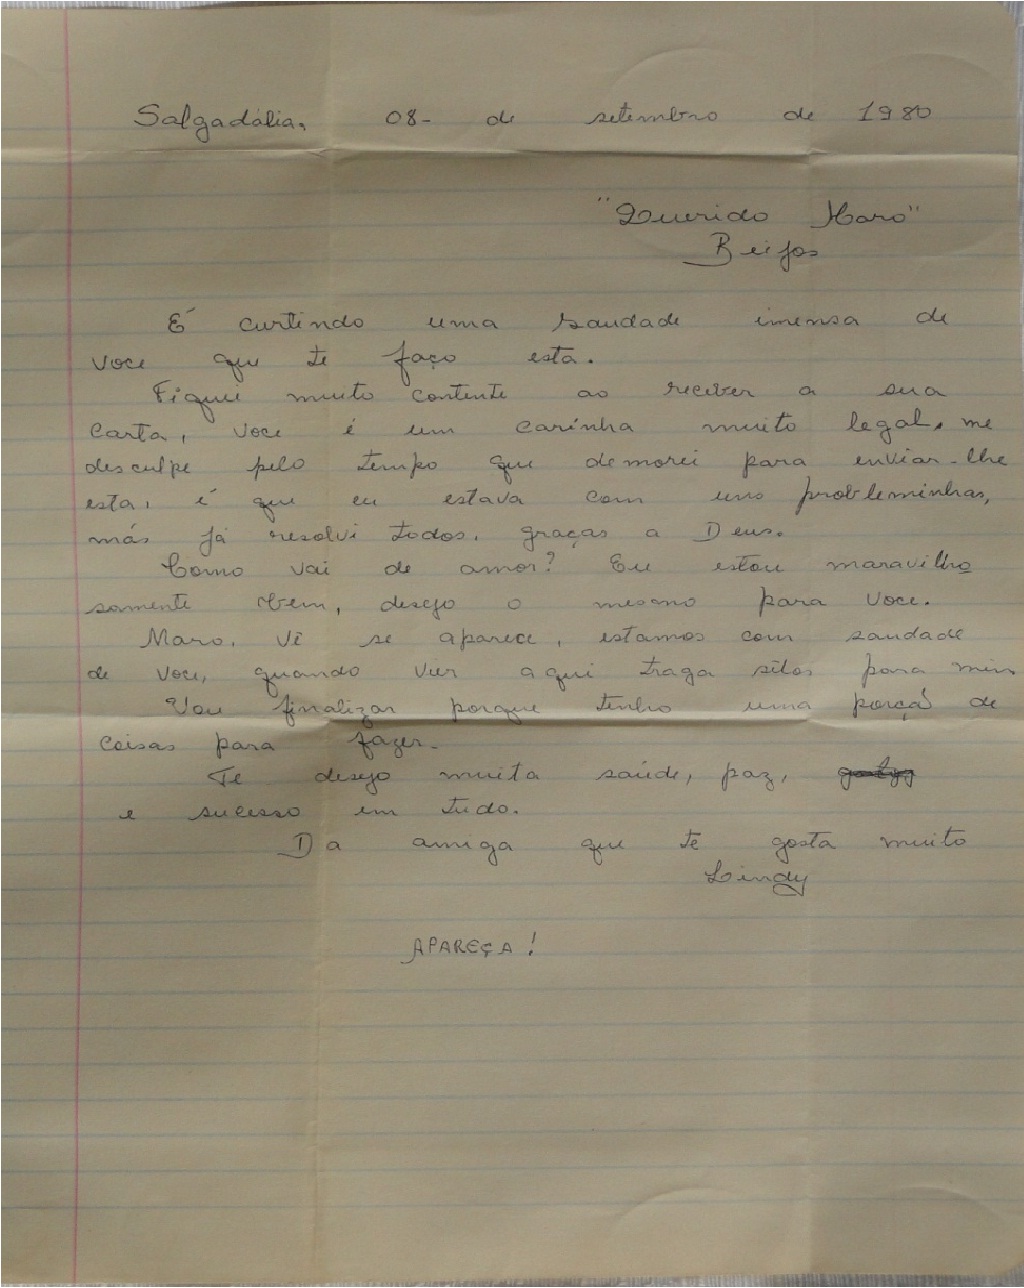 Salgadália, 08- de setembro de 1980
"Querido Maro"
Beijos
É curtindo uma saudade imensa de
voce que te faço esta.
Fiquei muito contente ao receber a sua
carta, voce é um carinha muito legal, me
desculpe pelo tempo que demorei para enviar-lhe
esta, é que eu estava com uns probleminhas,
más já resolvi todos, graças a Deus.
Como vai de amor? Eu estou maravilho
samente bem, desejo o mesmo para voce.
Maro, vê se aparece, estamos com saudade
de voce, quando vier aqui traga para mim
Vou finalizar porque tenho uma porçã de
coisas para fazer.
Te desejo muita saúde, paz,
e sucesso em tudo.
Da amiga que te gosta muito
Lindy
APAREÇA!